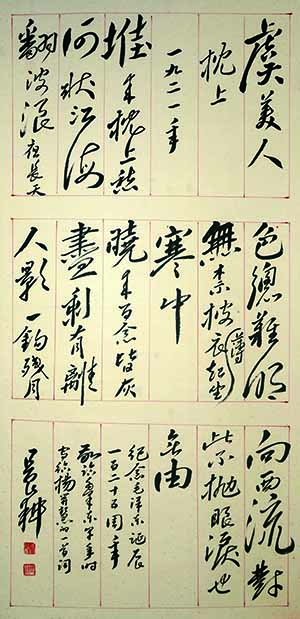 虞美人
枕上
一九二一年
堆来枕上愁
何状江海
翻波浪夜长天
色總難明
無柰披衣起坐薄
寒中
晓来百念皆灰
盡剩有離
人影一钩残月
向西流對
此不抛眼淚也
無由
纪念毛泽东诞辰
一百二十五周年
敬录毛泽东早年时
写给杨开慧的一首词